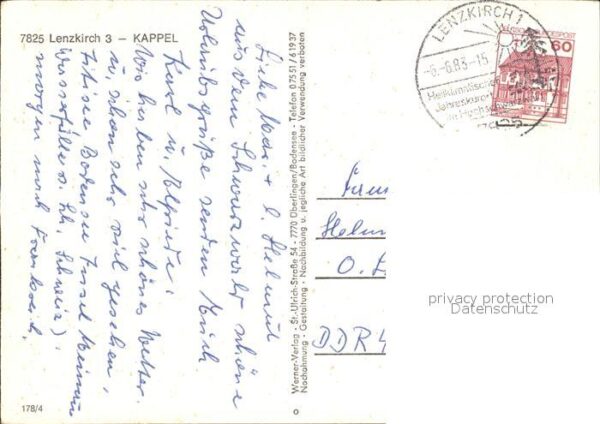 7825 Lenzkirch 3 – KAPPEL
Liebe u. l. Helmut
aus dem Schwarzwald schöne
Urlaubsgrüße senden Euch
Kurt u. Elfriede.
Wir haben sehr schönes Wetter
u. schon sehr viel gesehen,
Titisee Bodensee Insel Mainau
Wasserfälle
morgen nach Frankreich.
178/4
Werner-Verlag · St.-Ulrich-Straße 54 · 7770 Überlingen/Bodensee · Telefon 07551/61937
Nachahmung · Gestaltung · Nachbildung u. jegliche Art bildlicher Verwendung verboten
LENZKIRCH 1
-6.-6.83-15
Heilklimatischer
60
Fam
Helm
O. L
DDR 4
privacy protection
Datenschutz